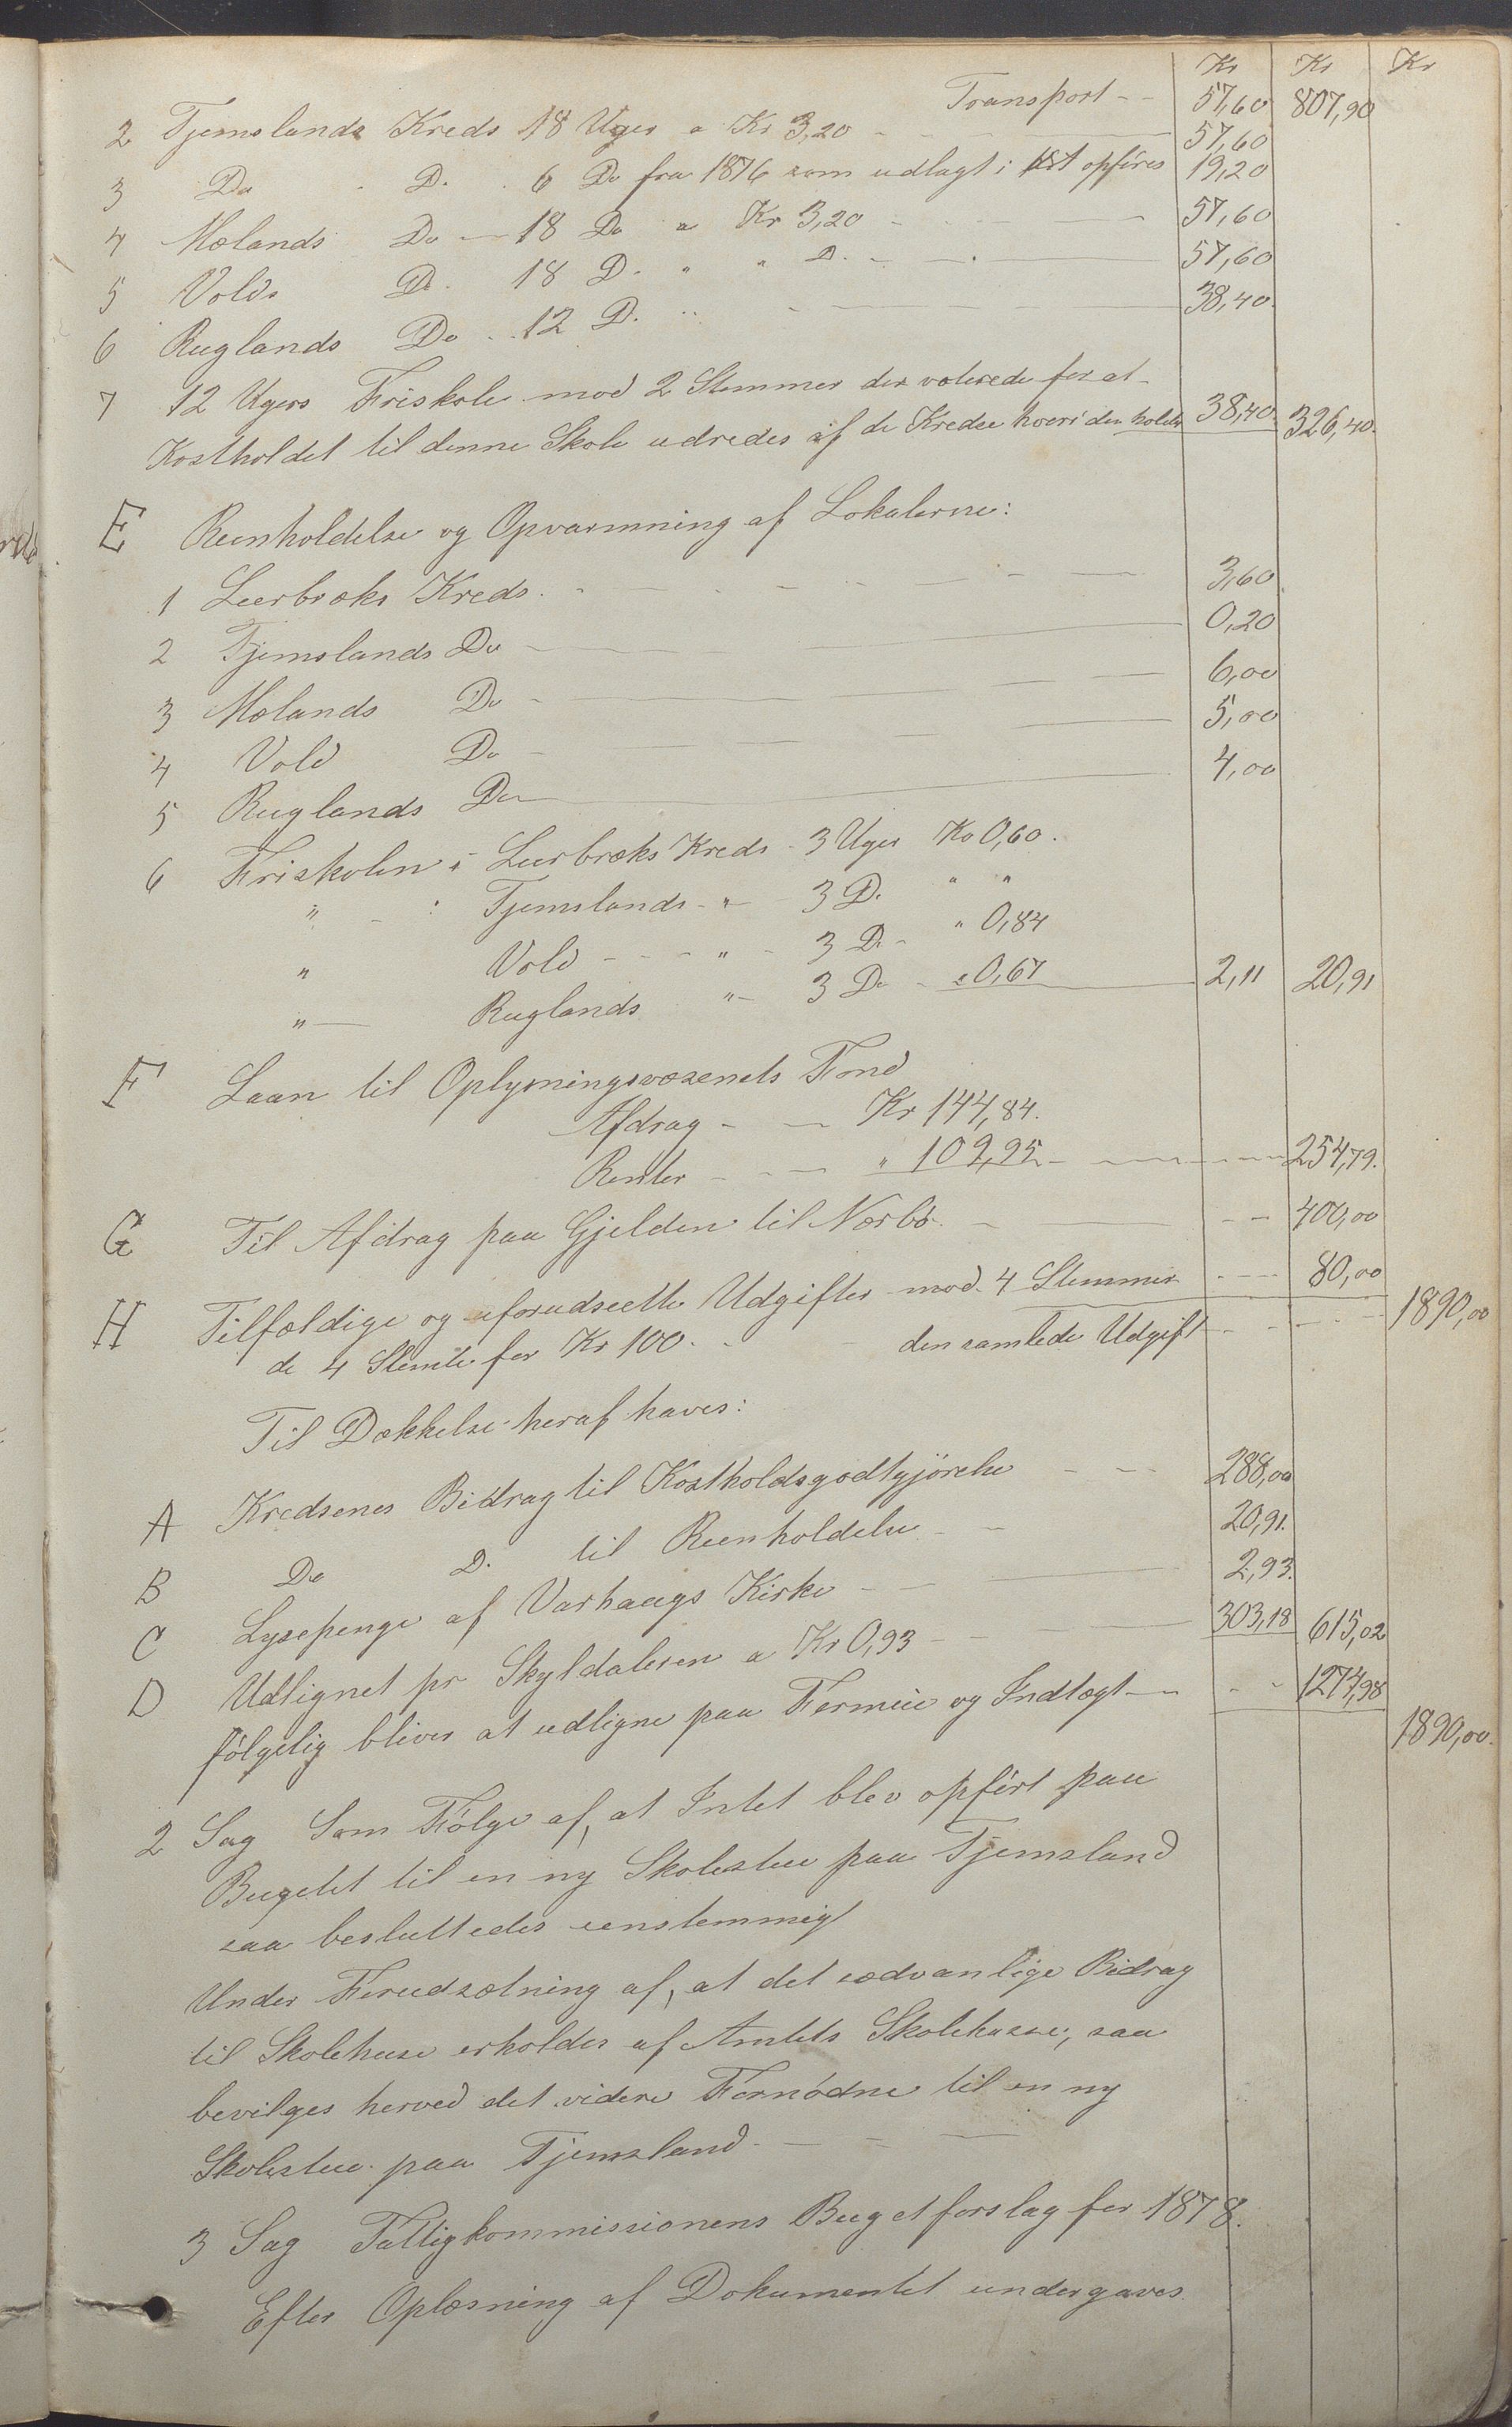 Kr Kr Kr
Transport -- 57,60 807,90
2 Tjemslands Kreds 18 Uger a Kr 3,20 - 57,60
3 Do D. 6 Do fra 1876 som udlagt i opføres 19,20
4 Mølands Do - 18 Do a Kr 3,20 - 57,60
5 Volds Do. 18 D. " " D. - 57,60
6 Ruglands Do .. 12 D. " - 38,40.
7 12 Ugers Friskole mod 2 Stemmer der voterede for at
Kostholdet til denne Skole udredes af de Kredse hvori den holdes 38,40. 326,40.
E Reenholdelse og Opvarmning af Lokalerne:
1 Leerbræks Kreds. - 3,60
2 Tjemslands Do - 0,20
3 Mølands Do - 6,00
4 Vold Do - 5,00
5 Ruglands Do - 4,00
6 Friskolen i Leerbræks Kreds - 3 Uger Kr 0,60.
" - : Tjemslands - " - 3 D. " "
" Vold - - - " - 3 D. - " 0,84
" - Ruglands " - 3 Do - " 0,67 2,11 20,91
F Laan til Oplysningsvæsenets Fond
Afdrag - - Kr 144,84.
Renter - - - " 109,95 - 254,79.
G Til Afdrag paa Gjelden til Nærbø. - 400,00
H Tilfældige og uforudseette Udgifter mod 4 Stemmer - 80,00
de 4 Stemte for Kr 100. - den samlede Udgift - 1890,00
Til Dækkelse heraf haves:
A Kredsenes Bidrag til Kostholdsgodtgjørelse - - 288,00
B Do D. til Reenholdelse - - 20,91.
C Lysepenge af Varhaugs Kirke - - 2,93.
D Udlignet pr Skyldaleren a Kr 0,93 - - 303,18 615,02
følgelig bliver at udligne paa Formue og Indtægt - - - 1274,98
1890,00.
2 Sag Som Følge af, at Intet blev opført paa
Bugetet til en ny Skolestue paa Tjemsland
saa besluttedes eenstemmigt
Under Forudsætning af, at det sædvanlige Bidrag
til Skolehuse erholdes af Amtets Skolekasse, saa
bevilges herved det videre Fornødne til en ny
Skolestue paa Tjemsland. - - -
3 Sag Fattigkommissionens Bugetforslag for 1878.
Efter Oplæsning af Dokumentet undergaves